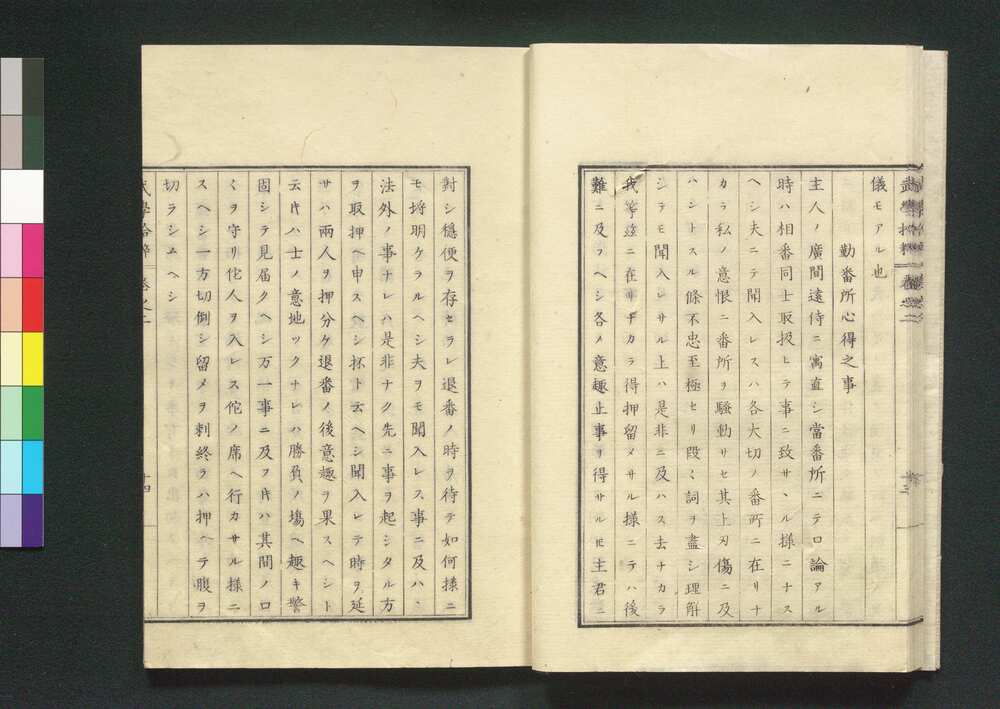 儀モアル也
勤番所心得之事
主人ノ廣間遠侍ニ寓直シ當番所ニテロ論アル
時ハ相番同士取扱ヒテ事ニ致サヽル様ニナス
ヘシ夫ニテ聞入レスハ各大切ノ番所ニ在リナ
カラ私ノ意恨ニ番所ヲ騒動サセ其上刃傷ニ及
ハントスル條不忠至極セリ段〻詞ヲ盡シ理解
シテモ聞入レサル上ハ是非ニ及ハス去ナカラ
我等玆ニ在リナカラ得押留メサル様ニテハ後
難ニ及フヘシ各ノ意趣止事ヲ得サル𪜈主君ニ
十三
對シ穏便ヲ存セラレ退番ノ時ヲ待テ如何様ニ
モ埒明ケラルヘシ夫ヲモ聞入レス事ニ及ハヽ
法外ノ事ナレハ是非ナク先ニ事ヲ起シタル方
ヲ取押ヘ申スヘシ抔ト云ヘシ聞入レテ時ヲ延
サハ兩人ヲ押分ケ退番ノ後意趣ヲ果スヘシト
云𪜈ハ士ノ意地ツクナレハ勝負ノ塲ヘ趣キ警
固シテ見届クヘシ万一事ニ及フ𪜈ハ其間ノ口
〻ヲ守リ佗人ヲ入レス佗ノ席ヘ行カサル様ニ
スヘシ一方切倒シ留メヲ刺終ラハ押ヘテ腹ヲ
切ラシムヘシ
武學拾粹 卷之二
十四